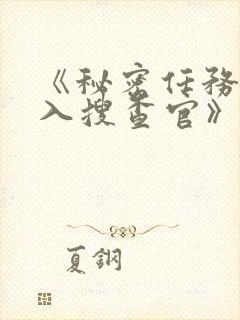 《秘密任务
入搜查官》
夏鋼